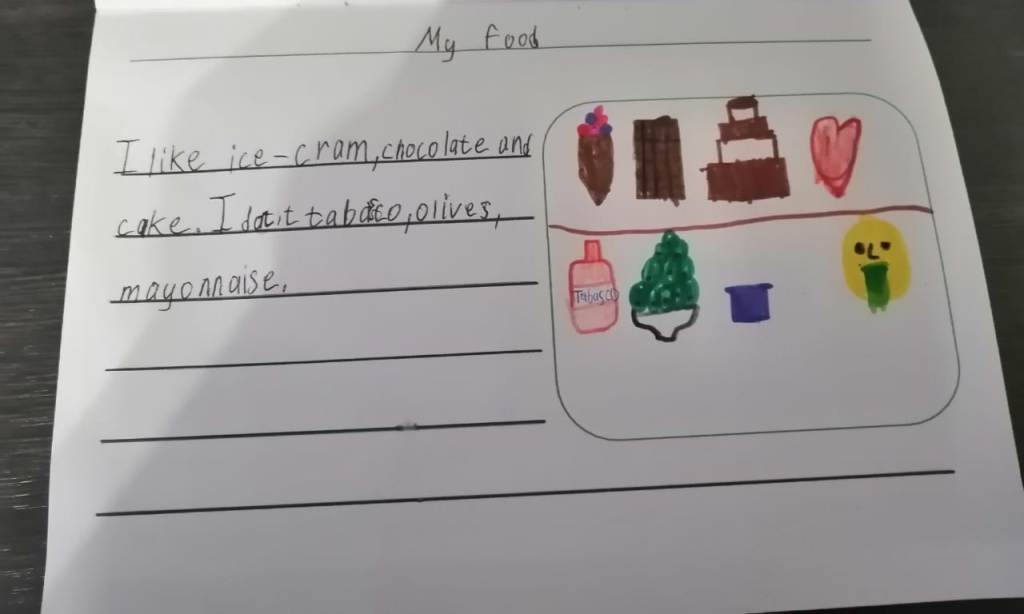 My Food
I like ice-cram, chocolate and
cake. I dotit tabasco, olives,
mayonnaise.
Tabasco